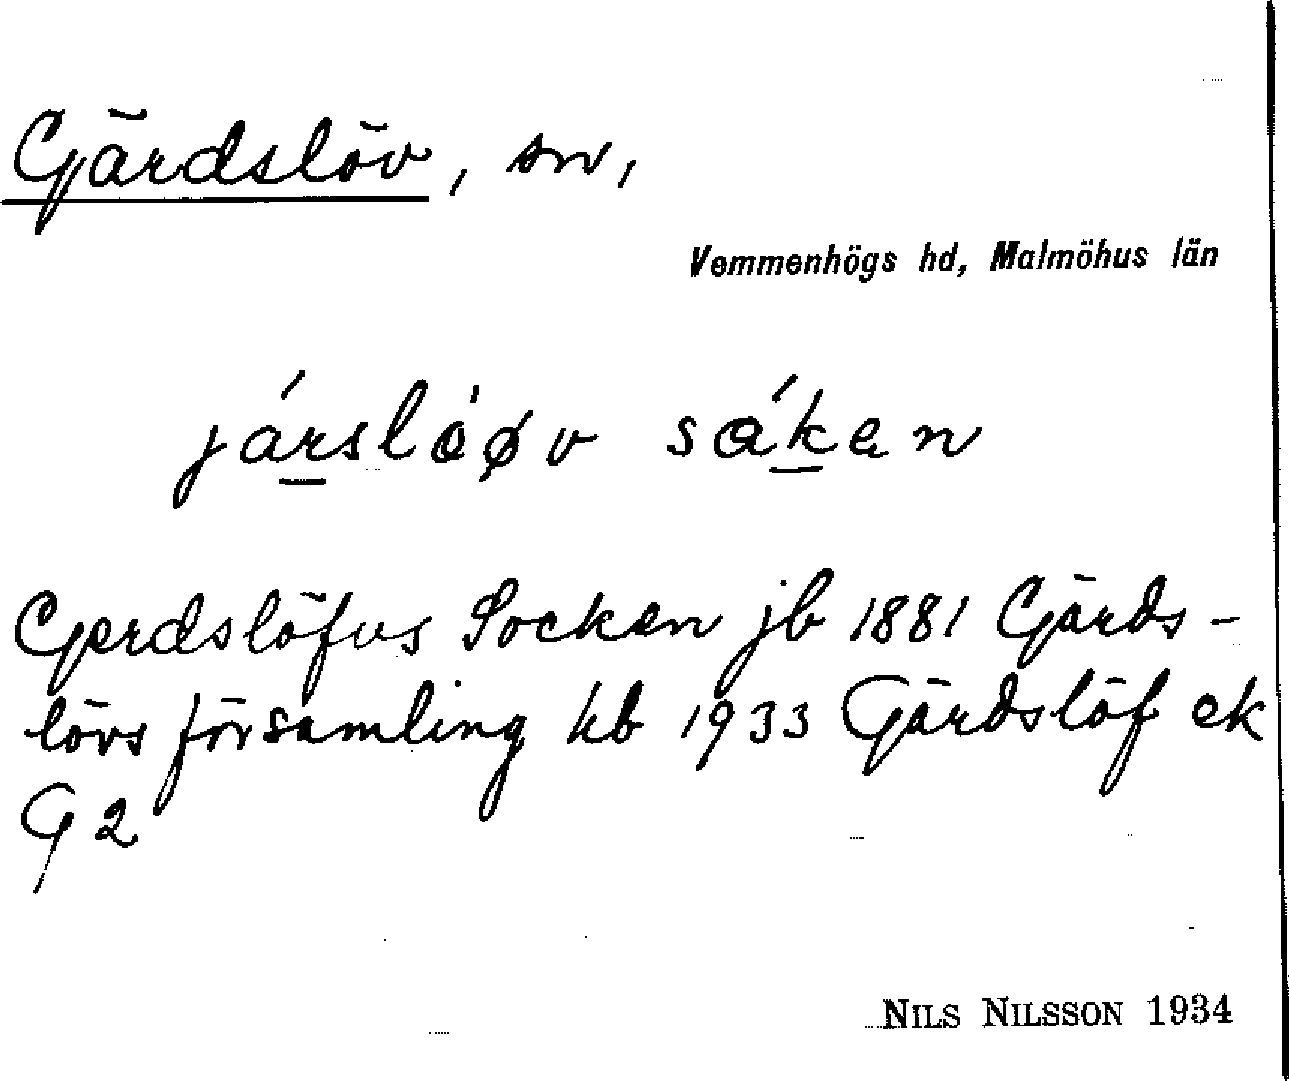 Gärdslöv, sn,
Vemmenhögs hd, Malmöhus län
járslåøv såken
Gerdslöfvs Socken jb 1881 Gärds-
lövs församling kb 1933 Gärdslöf ek
G 2
NILS NILSSON 1934